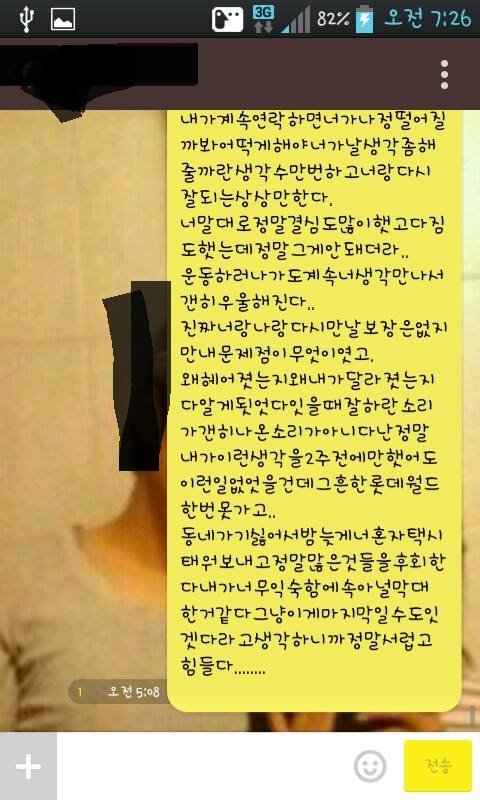 3G 82% 오전 7:26
내가계속연락하면너가나정떨어질
까봐어떡게해야너가날생각좀해
줄까란생각수만번하고너랑다시
잘되는상상만한다.
너말대로정말결심도많이햇고다짐
도했는데정말그게안돼더라..
운동하러나가도계속너생각만나서
갠히우울해진다..
진짜너랑나랑다시만날보장은없지
만내문제점이무엇이엿고.
왜헤어졋는지왜내가달라졋는지
다알게됫엇다잇을때잘하란소리
가갠히나온소리가아니다난정말
내가이런생각을2주전에만했어도
이런일없엇을건데그흔한롯데월드
한번못가고..
동네가기싫어서밤늦게너혼자택시
태워보내고정말많은것들을후회한
다내가너무익숙함에속아널막대
한거같다그냥이게마지막일수도잇
겟다라고생각하니까정말서럽고
힘들다........
1 오전 5:08
전송